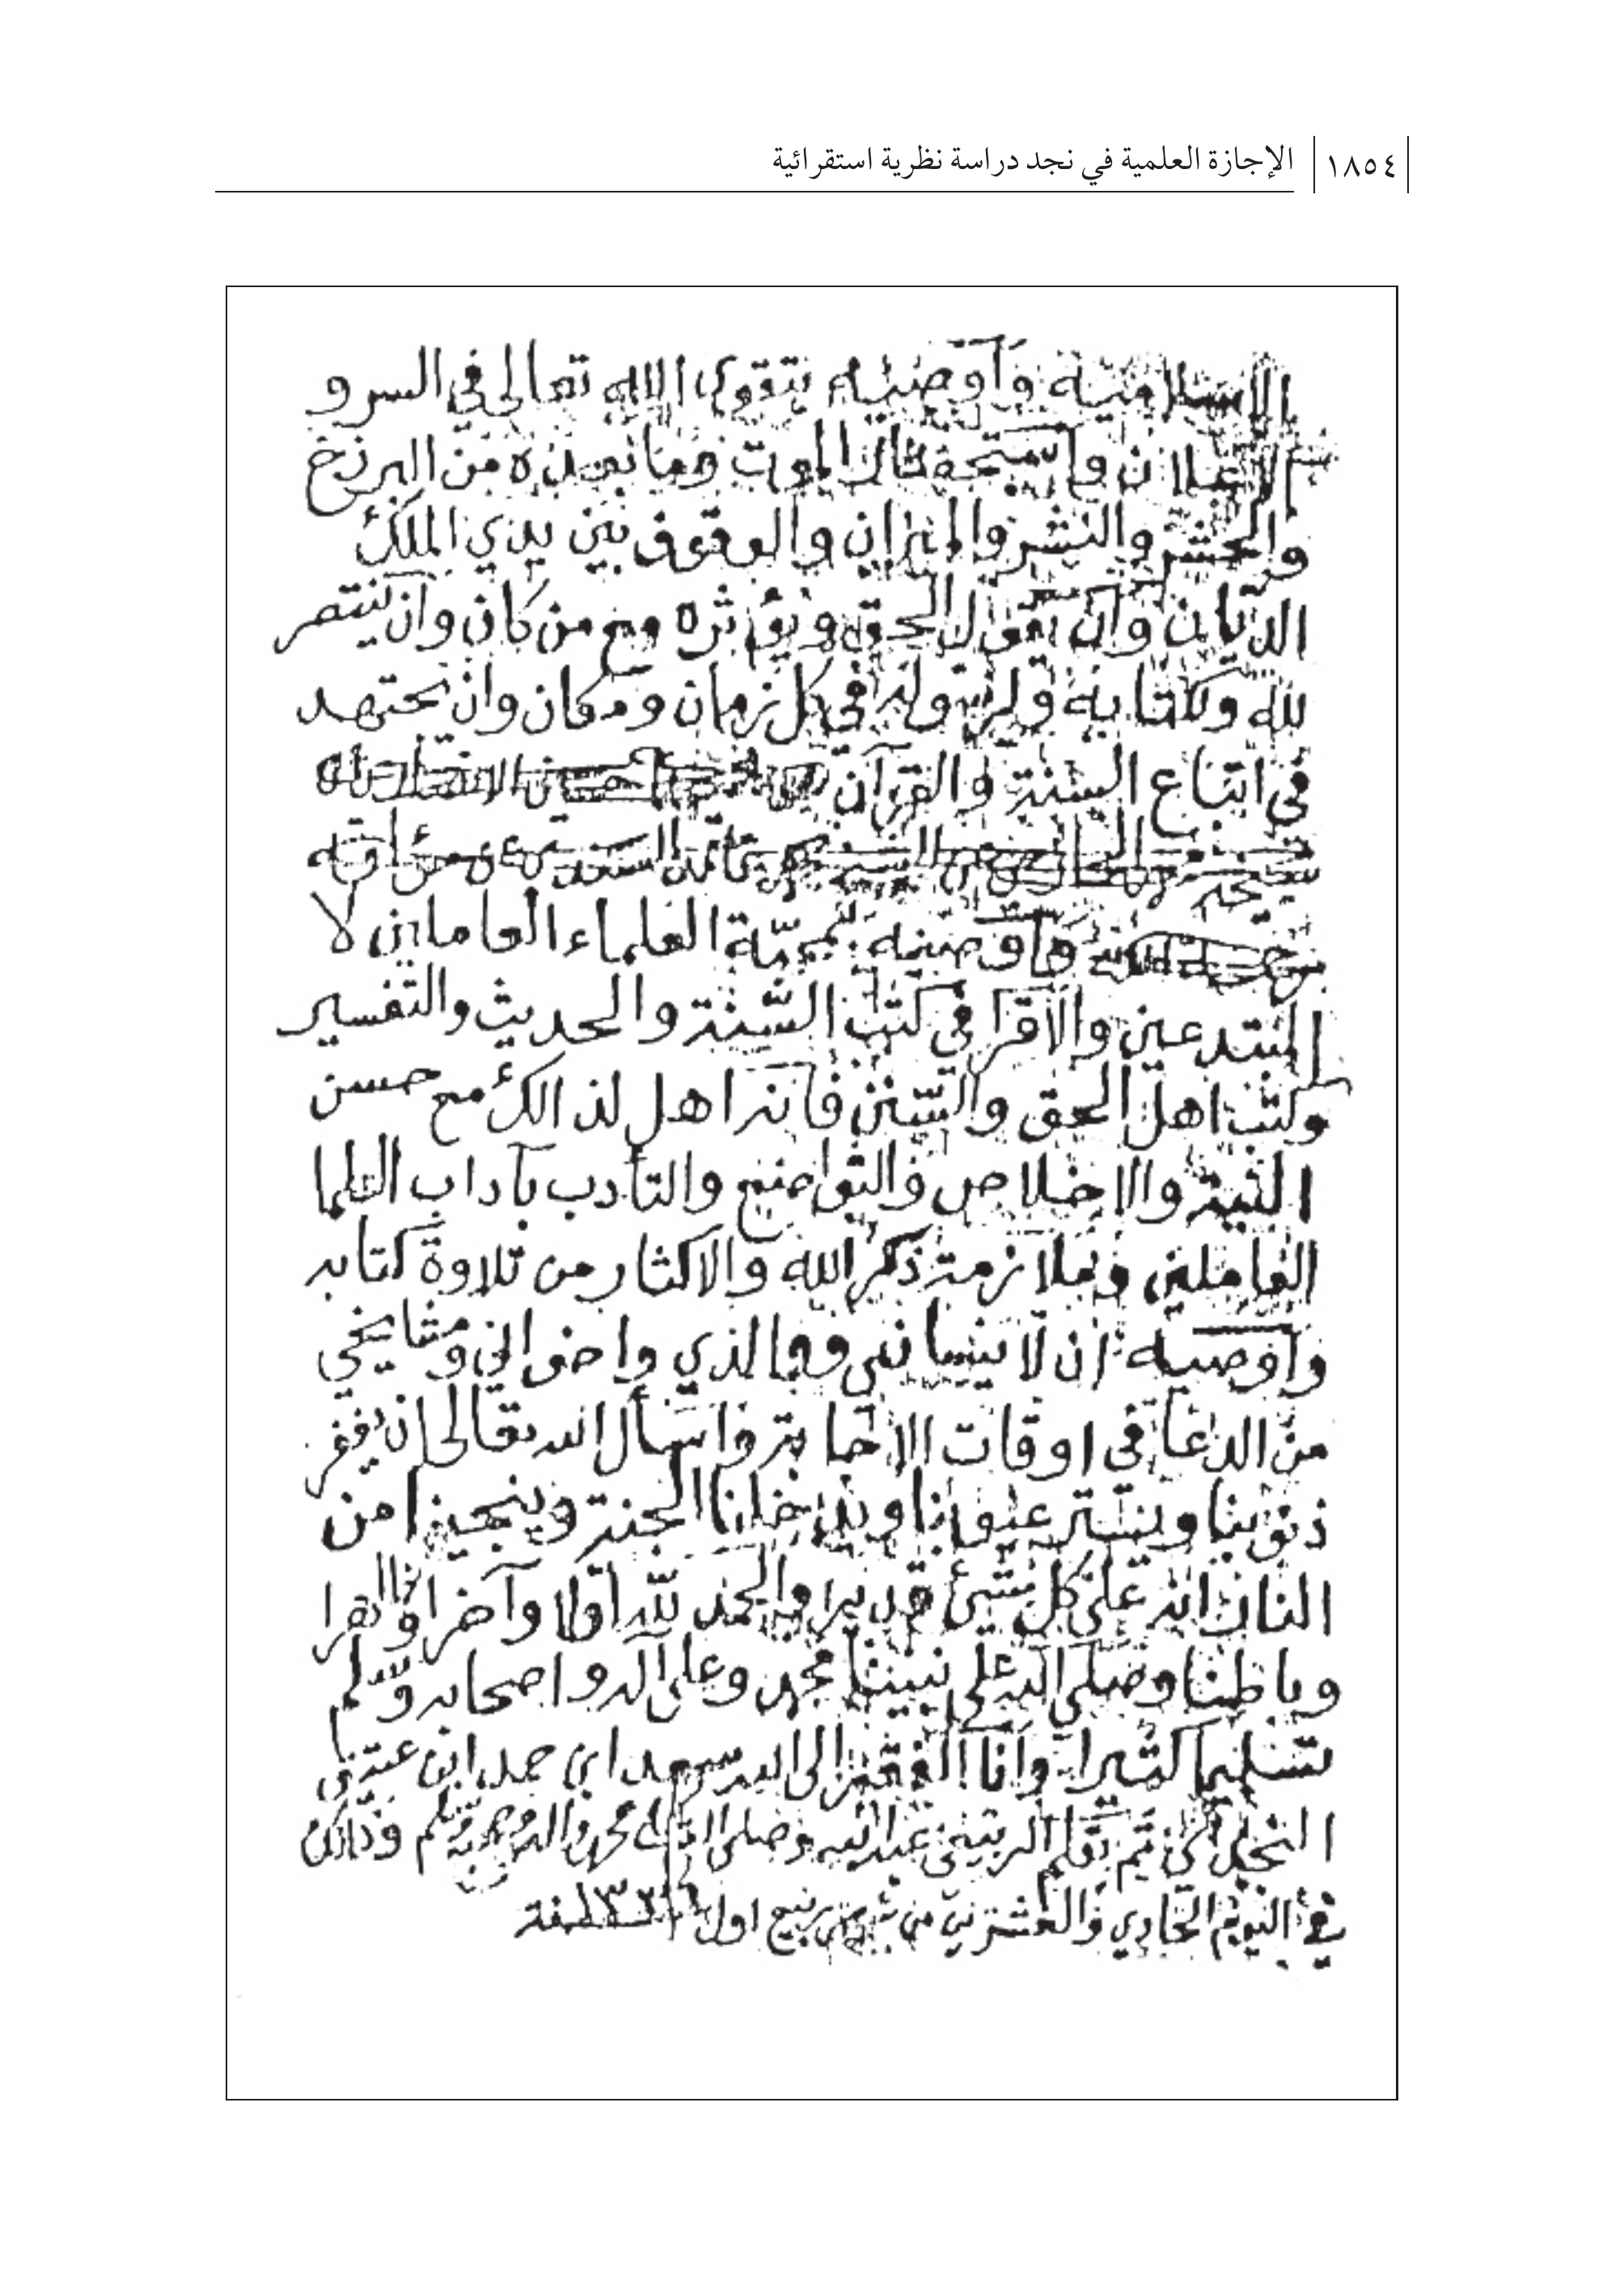 ١٨٥٤ الإجازة العلمية في نجد دراسة نظرية استقرائية
الاسلامية وأوصيه بتقوى الله تعالى في السر و
الاعلان واستحضار الموت وما بعده من البرزخ
والحشر والنشر والميزان والوقوف بين يدي الملك
الديان وان يقول الحق ويؤثره مع من كان وان ينتصر
لله ولكتابه ولرسوله في كل زمان ومكان وان يجتهد
في اتباع السنة والقرآن
واوصيه بمحبة العلماء العاملين لا
المبتدعين والاقرا في كتب السنة والحديث والتفسير
وكتب اهل الحق والسنن فانه اهل لذالك مع حسن
النية والاخلاص والتواضع والتأدب بآداب العلما
العاملين وبملازمة ذكر الله والاكثار من تلاوة كتابه
وأوصيه ان لا ينساني ووالدي واخواني ومشايخي
من الدعا في اوقات الاجابة واسأل الله تعالى ان يغفر
ذنوبنا ويستر عيوبنا ويدخلنا الجنة وينجينا من
النار انه على كل شيئ قدير والحمد لله اولا وآخرا وظاهرا
وباطنا وصلى الله على نبيننا محمد وعلى آله واصحابه وسلم
تسليما كثيرا وانا الفقير الى الله سعد ابن حمد ابن عتيق
النجدي تم بقلم عبد الله وصلى الله على محمد واله وصحبه وسلم وذالك
في اليوم الحادي والعشرين من شهر ربيع اول سنة